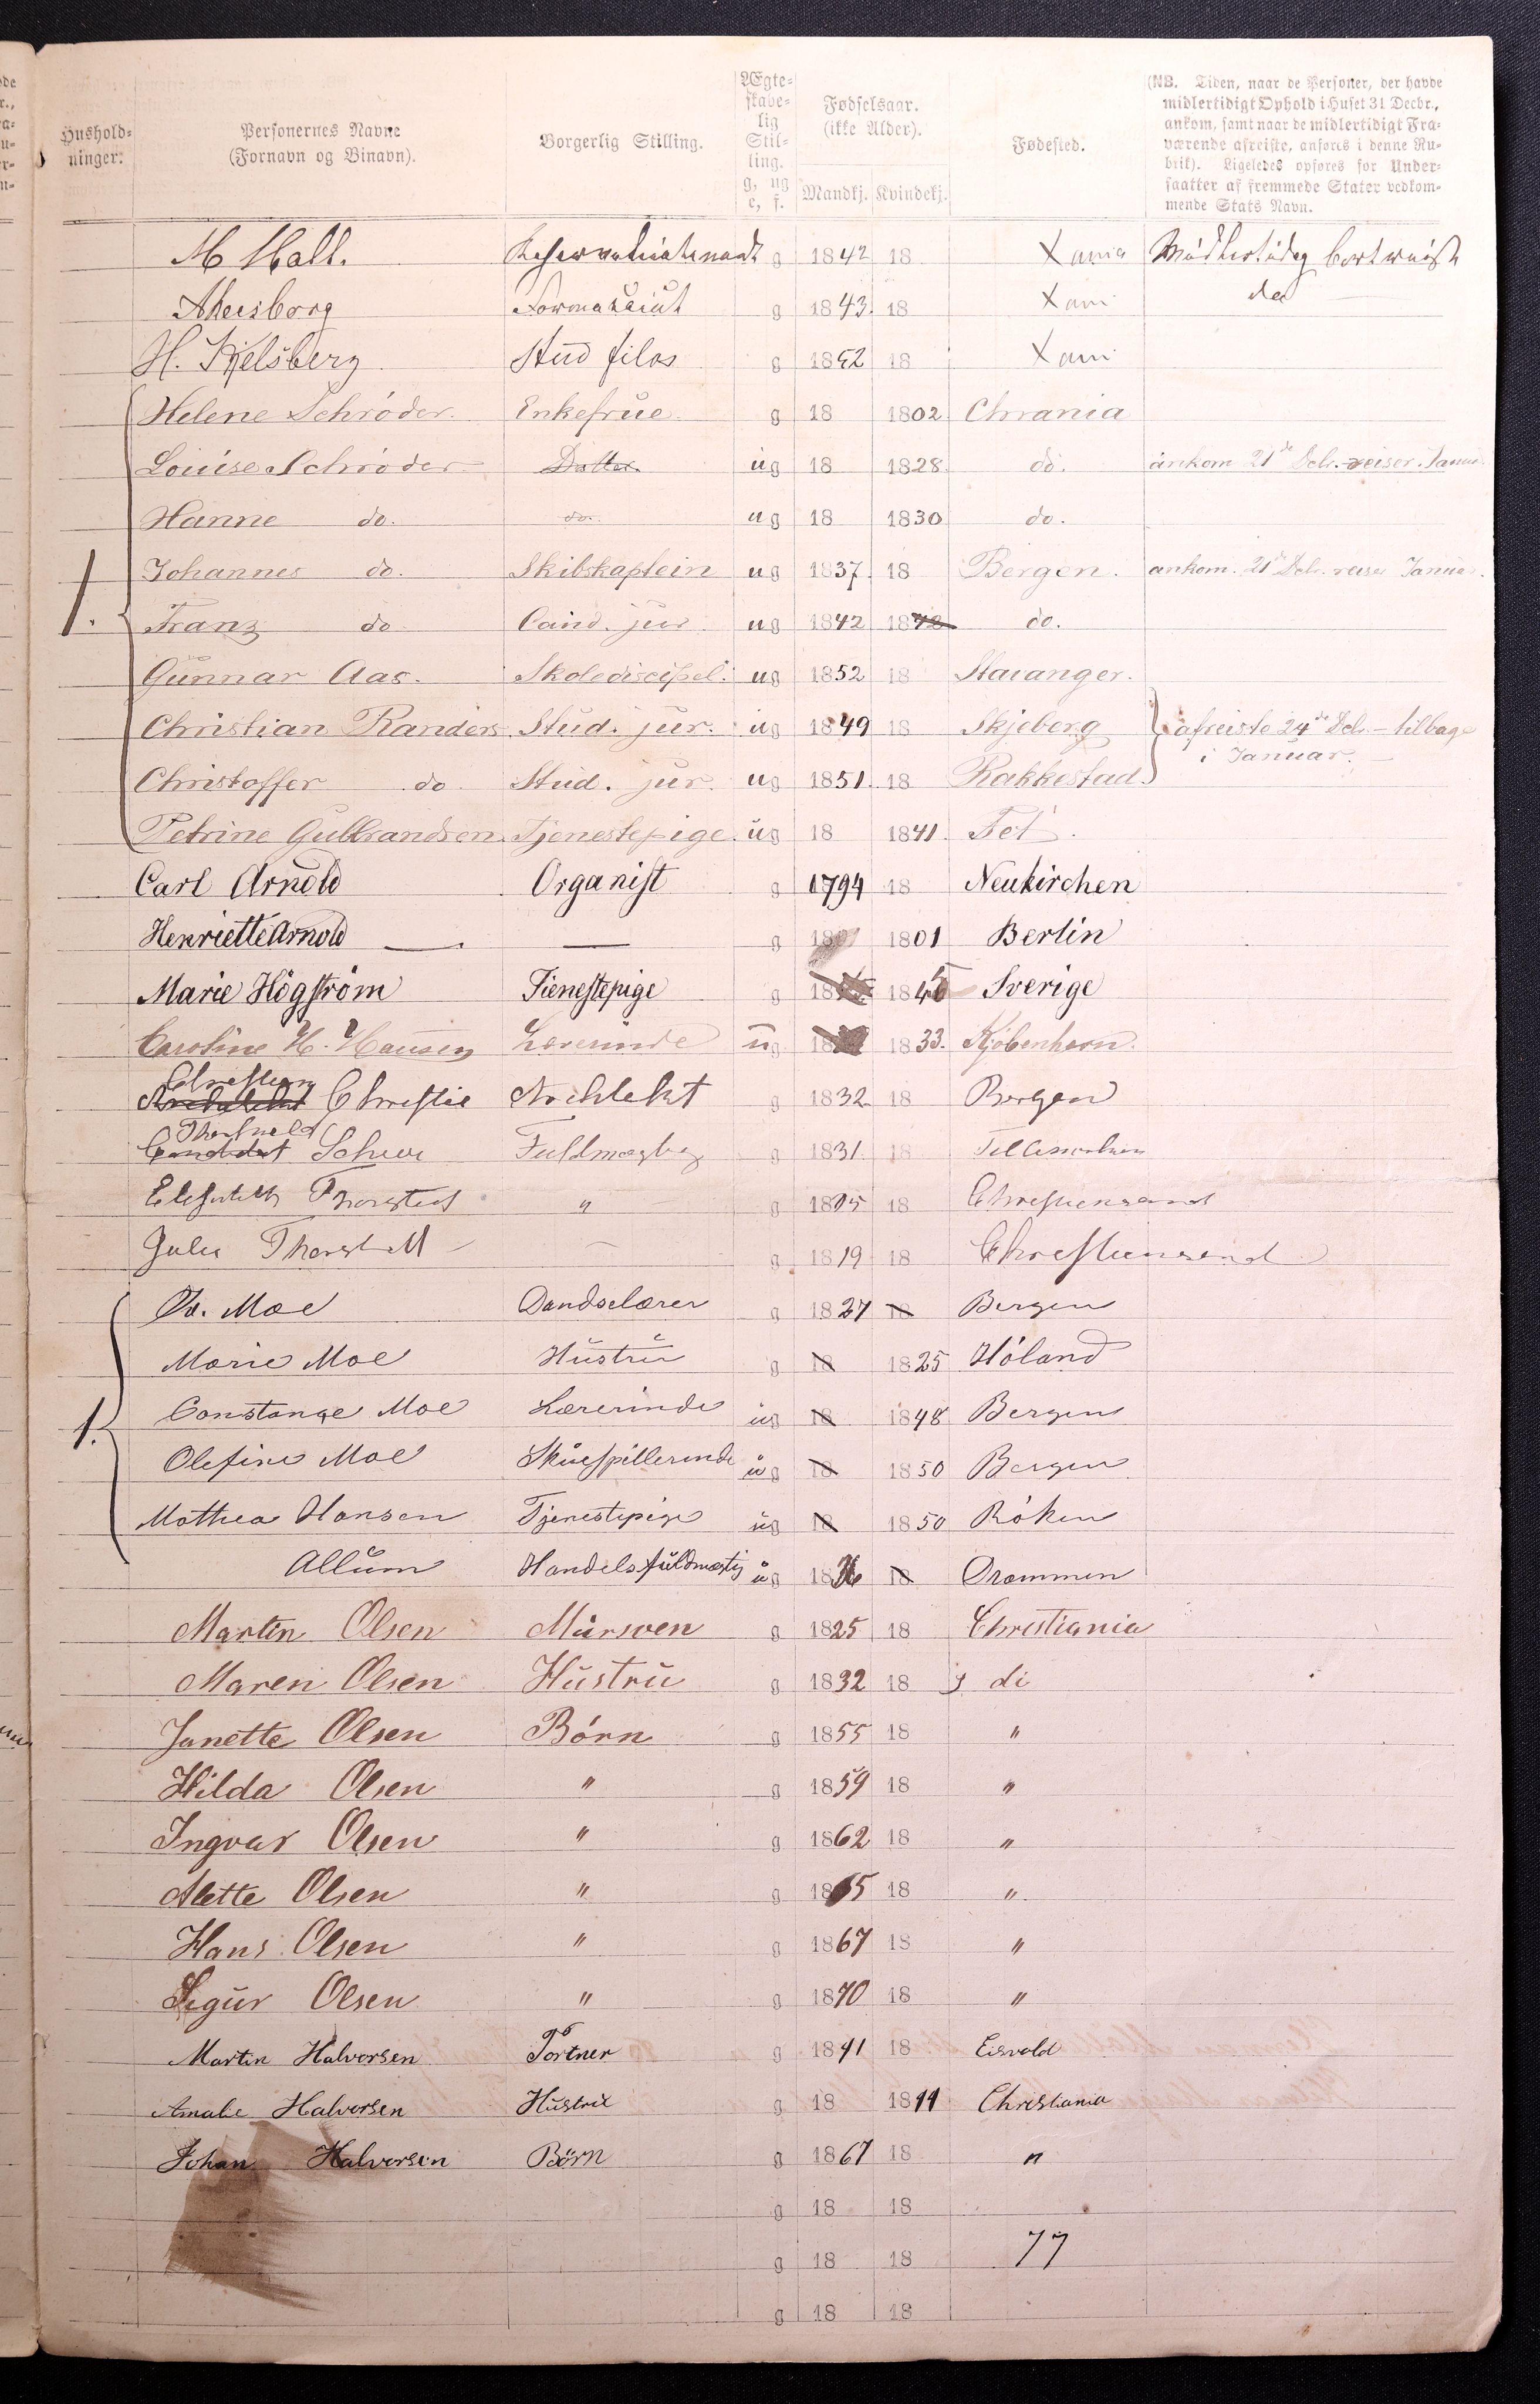 Hushold-
ninger.
Personernes Navne
(Fornavn og Binavn).
Borgerlig Stilling.
Ægte-
skabe-
lig
Stil-
ling.
g, ug
e, f.
Fødselsaar.
(ikke Alder).
Mandkj. Kvindekj.
Fødested.
(NB. Tiden, naar de Personer, der havde
midlertidigt Ophold i Huset 31 Decbr.,
ankom, samt naar de midlertidigt Fra-
værende afreiste, anføres i denne Ru-
brik). Ligeledes opføres for Under-
saatter af fremmede Stater vedkom-
mende Stats Navn.
M Hall. g 1842 18 Xania Midlertidig bortreist
Akersborg g 1843. 18 Xani do
H. Kjelsberg Stud filos g 1852 18 Xani
Helene Schrøder. Enkefrue g 18 1802 Chrania
Louise Schrøder Datter. ug 18 1828. do. ankom 21de Dcb. reiser Januar
Hanne do. do. ug 18 1830 do.
1. Johannes do. Skibskaptein ug 1837. 18 Bergen. ankom. 21de Dcb. reiser Januar.
Franz do Cand. jur ug 1842 1842 do.
Gunnar Aas. Skolediscipel. ug 1852 18 Stavanger.
Christian Randers Stud. jur. ug 1849 18 Skjeberg afreiste 24de Dcb. - tilbage
i Januar.
Christoffer do Stud. jur. ug 1851. 18 Rakkestad
Petrine Gulbrandsen Tjenestepige. ug 18 1841. Fet.
Carl Arnold Organist g 1794 18 Neukirchen
Henriette Arnold — g 18 1801 Berlin
Marie Högström Tienestepige g 18 1845 Sverige
Caroline H. Hansen Lærerinde ug 18 1833. Kjøbenhavn.
Christian
Christie Architekt g 1832. 18 Bergen
Thorvald
Candidat Fuldmægtig g 1831. 18
Elisabeth " g 1815 18 Christiansand
Julie — g 1819 18 Christiansand
Moe Dandselærer g 1827 18 Bergen
Marie Moe Hustru g 18 1825 Høland
1. Constance Moe Lærerinde ug 18 1848 Bergen
Olefine Moe Skuespillerinde ug 18 1850 Bergen
Mathea Hansen Tjenestepige ug 18 1850 Røken
Allum Handelsfuldmægtig ug 1836 18 Drammen
Martin Olsen Mursven g 1825 18 Christiania
Maren Olsen Hustru g 1832 18 di
Janette Olsen Børn g 1855 18 "
Hilda Olsen " g 1859 18 "
Ingvar Olsen " g 1862 18 "
Alette Olsen " g 1865 18 "
Hans Olsen " g 1867 18 "
Sigur Olsen " g 1870 18 "
Martin Halvorsen Portner g 1841 18 Eisvold
Amalie Halvorsen Hustru g 18 1844 Christiania
Johan Halvorsen Börn g 1867 18 "
g 18 18
g 18 18 77
g 18 18